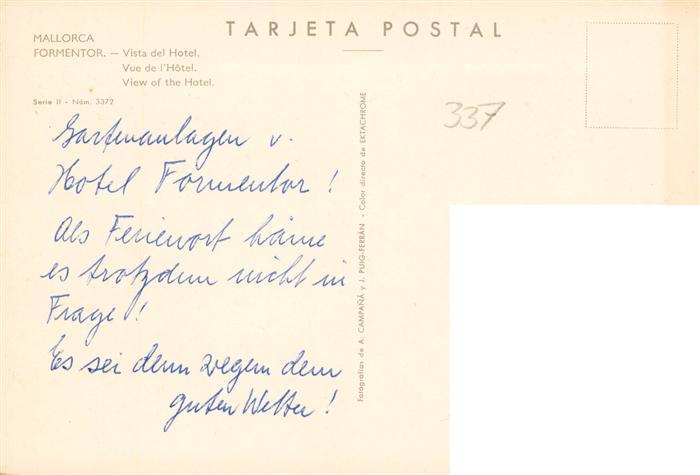 TARJETA POSTAL
MALLORCA
FORMENTOR. — Vista del Hotel.
Vue de l'Hôtel.
View of the Hotel.
Serie II - Núm. 3372
337
Gartenanlagen v.
Hotel Formentor!
Als Ferienort käme
es trotzdem nicht in
Frage!
Es sei denn wegen dem
guten Wetter!
Fotografías de A. CAMPAÑÁ y J. PUIG-FERRÁN - Color directo de EKTACHROME